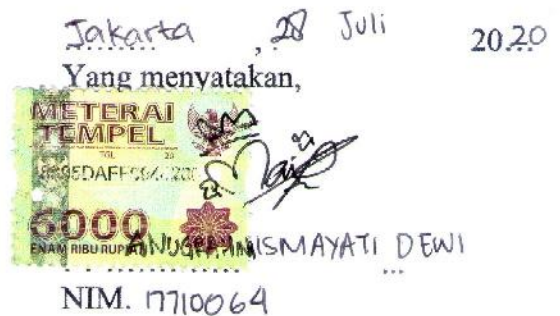 Jakarta, 28 Juli 2020
Yang menyatakan,
METERAI
TEMPEL
TGL 20
6000
ENAM RIBU RUPIAH
ISMAYATI DEWI
NIM. 1710064